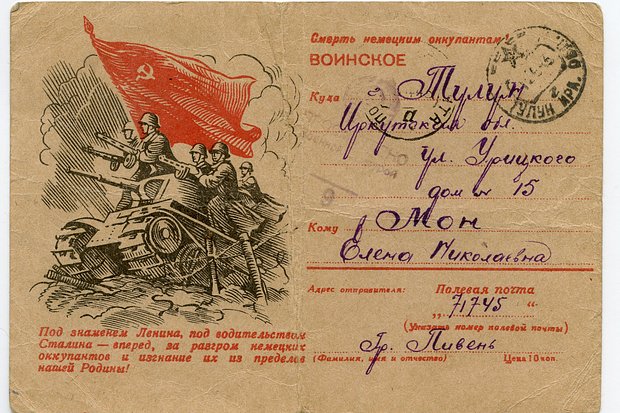 Смерть немецким оккупантам!
ВОИНСКОЕ
Куда г. Тулун
Иркутская обл.
ул. Урицкого
дом № 15
Кому Мон
Елена Николаевна
Адрес отправителя: Полевая почта
„ 71745 “
(Указать номер полевой почты)
Гр. Пивень
(Фамилия, имя и отчество) Цена 10 коп.
Под знаменем Ленина, под водительством
Сталина — вперед, за разгром немецких
оккупантов и изгнание их из пределов
нашей Родины!